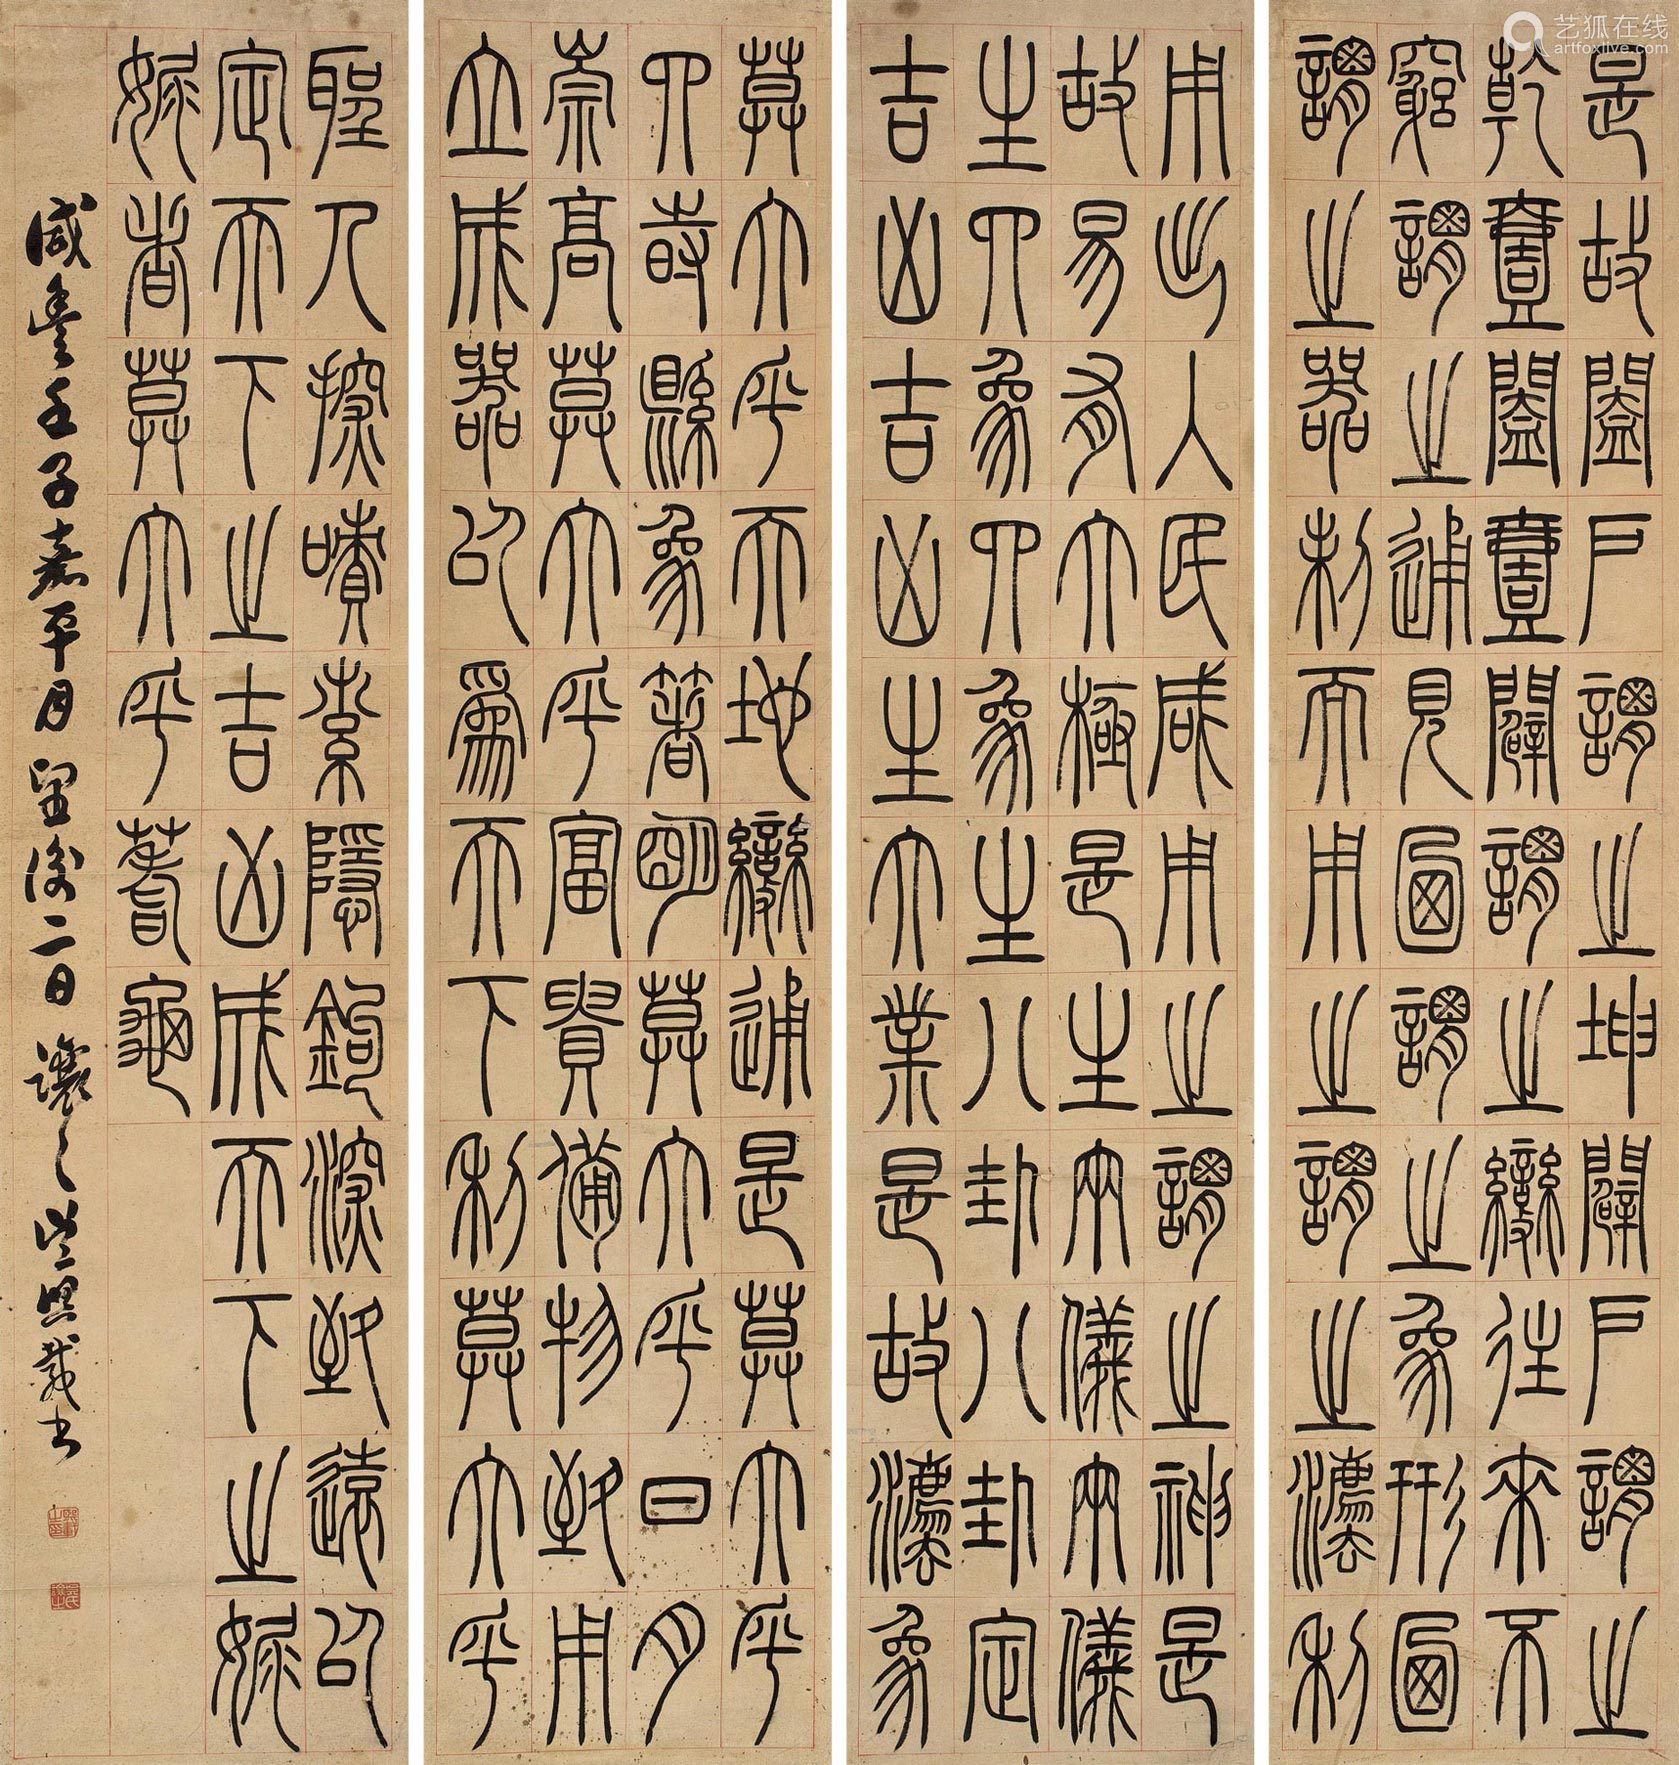 是故闔戶謂之坤闢戶謂之
乾壹闔壹闢謂之變往來不
窮謂之通見乃謂之象形乃
謂之器制而用之謂之灋利
用出入民咸用之謂之神是
故易有大極是生兩儀兩儀
生四象四象生八卦八卦定
吉凶吉凶生大業是故灋象
莫大乎天地變通是莫大乎
四時縣象著明莫大乎日月
崇高莫大乎富貴備物致用
立成器以爲天下利莫大乎
聖人探嘖索隱鉤深致遠以
定天下之吉凶成天下之娓
娓者莫大乎蓍龜
咸豐壬子嘉平月望後二日讓之吳熙載書
熙載之印
艺狐在线
artfoxlive.com